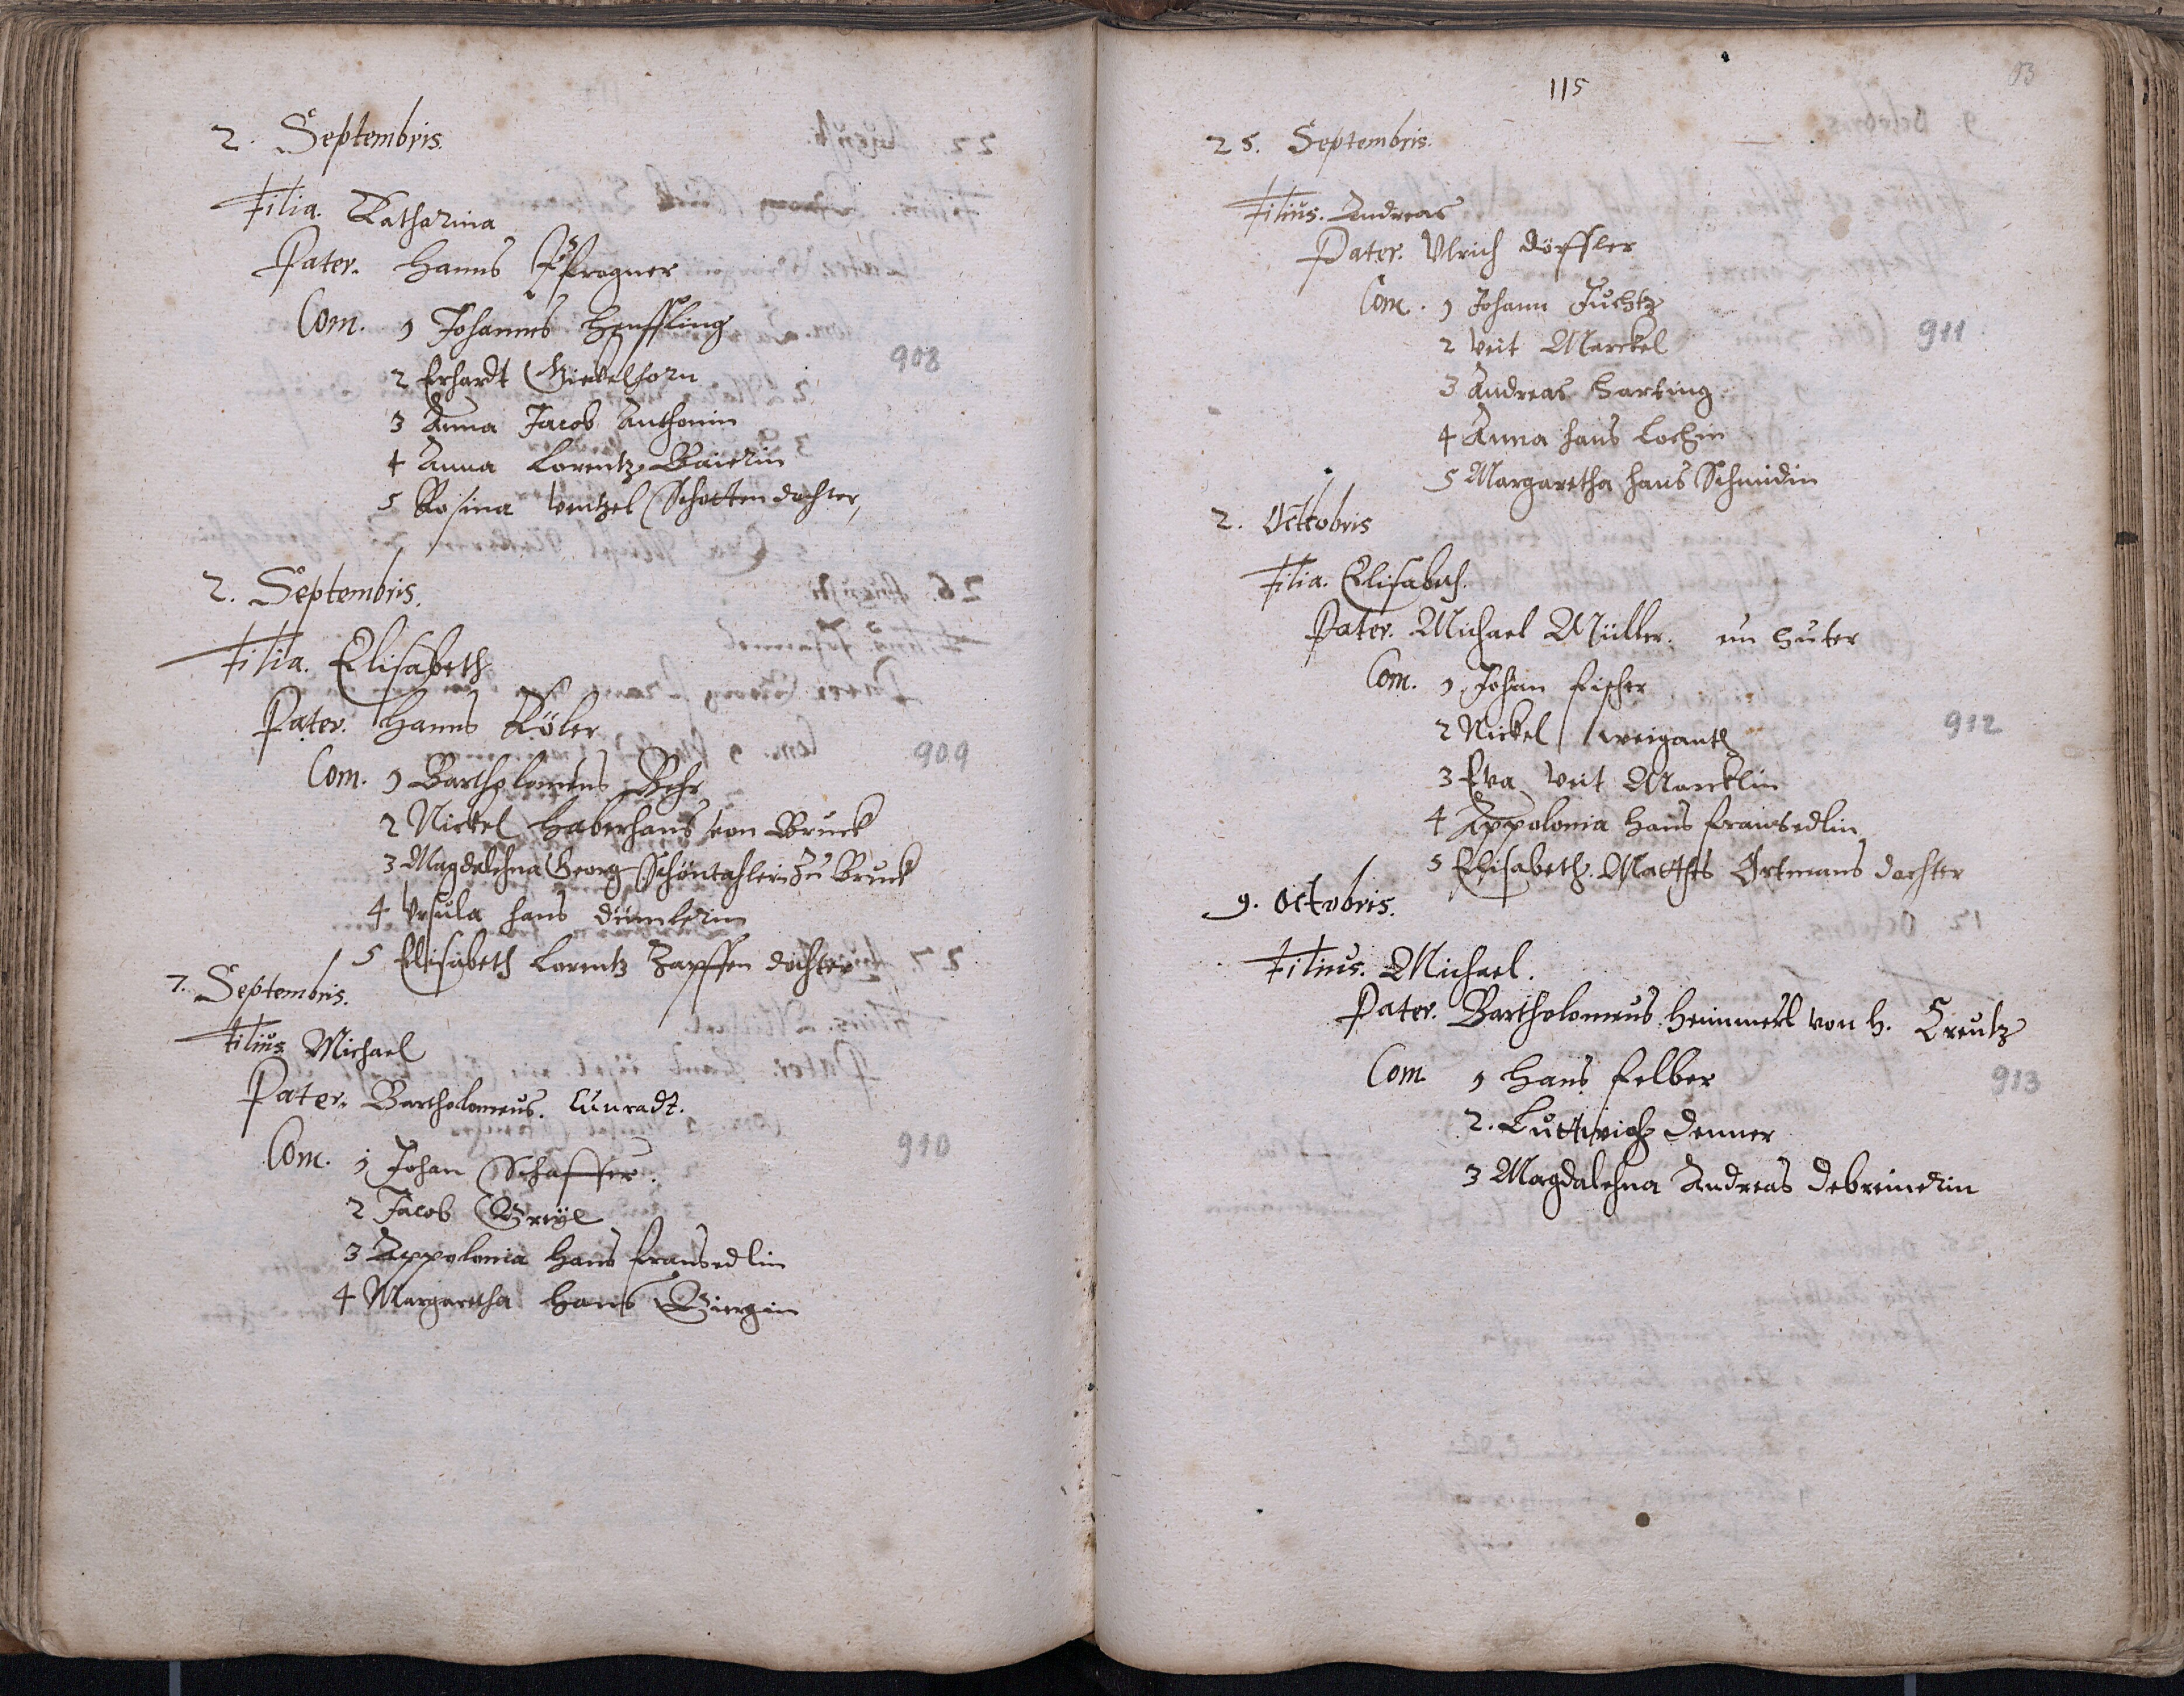 2. Septembris.
Filia. Katharina
Pater. Hanns Pfrogner
Com. 1 Johannes Henffling
2 Erhardt Giebelhorn
908
3 Anna Jacob Anthonin
4 Anna Lorentz Baierin
5 Rosina Wentzel Schotten dochter,
2. Septembris.
Filia. Elisabeth
Pater. Hanns Köler
909
Com. 1 Bartholomeus Behr
2 Nickel Haberhans von Bruck
3 Magdalehna Georg Schöntahlerin Zu Bruck
4 Ursula hans Dümlerin
5 Elisabeth Lorentz Zapffen dochter
7. Septembris.
Filius Michael
Pater. Bartholomeus. Cunradt.
910
Com. 1 Johan Schaffer.
2 Jacob
3 Appolonia Hans fransedlin
4 Margaretha Hans Giergin
115
25. Septembris.
Filius. Andreas
Pater. Ulrich Döffler
Com. 1 Johann Fuchtz
911
2 Veit Marckel
3 Andreas Harting
4 Anna hans Lochin
5 Margaretha hans Schmidin
2. Octobris
Filia. Elisabeth.
Pater. Michael Müller. ein Huter
Com. 1 Johan Fischer
2 Nickel weiganth
912
3 Eva Veit Marcklin
4 Appolonia Hans fransedlin
5 Elisabeth. Matthes Ortmans dochter
9. Octobris.
Filius. Michael.
Pater. Bartholomeus Heimmerl von H. Creutz
Com. 1 Hans Felber
913
2. Luttwich Denner
3 Magdalehna Andreas